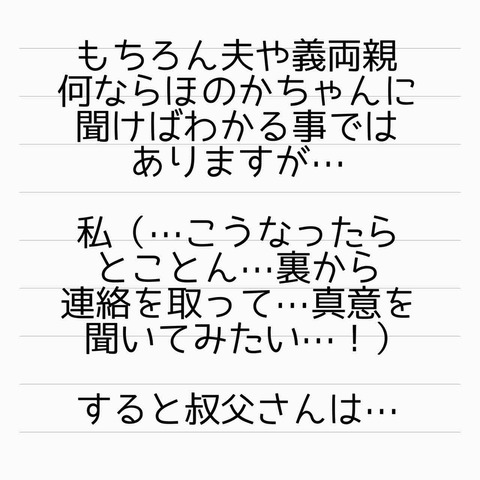 もちろん夫や義両親
何ならほのかちゃんに
聞けばわかる事では
ありますが…
私（…こうなったら
とことん…裏から
連絡を取って…真意を
聞いてみたい…！）
すると叔父さんは…